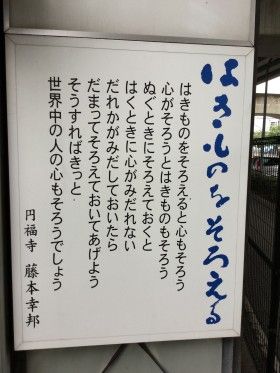 はきものをそろえる
はきものをそろえると心もそろう
心がそろうとはきものもそろう
ぬぐときにそろえておくと
はくときに心がみだれない
だれかがみだしておいたら
だまってそろえておいてあげよう
そうすればきっと
世界中の人の心もそろうでしょう
円福寺 藤本幸邦